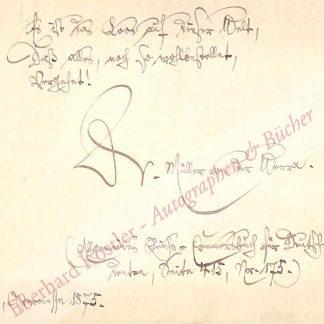 Es ist das Loos auf dieser Welt,
Daß alles, noch so wohlbestellet,
Vergehet!
Dr. Müller von der Werra.
(Allgemeines Reichs-Commersbuch für Deutsche
Seite 415, No. 175.)
1875.
Eberhard Köstler - Autographen & Bücher